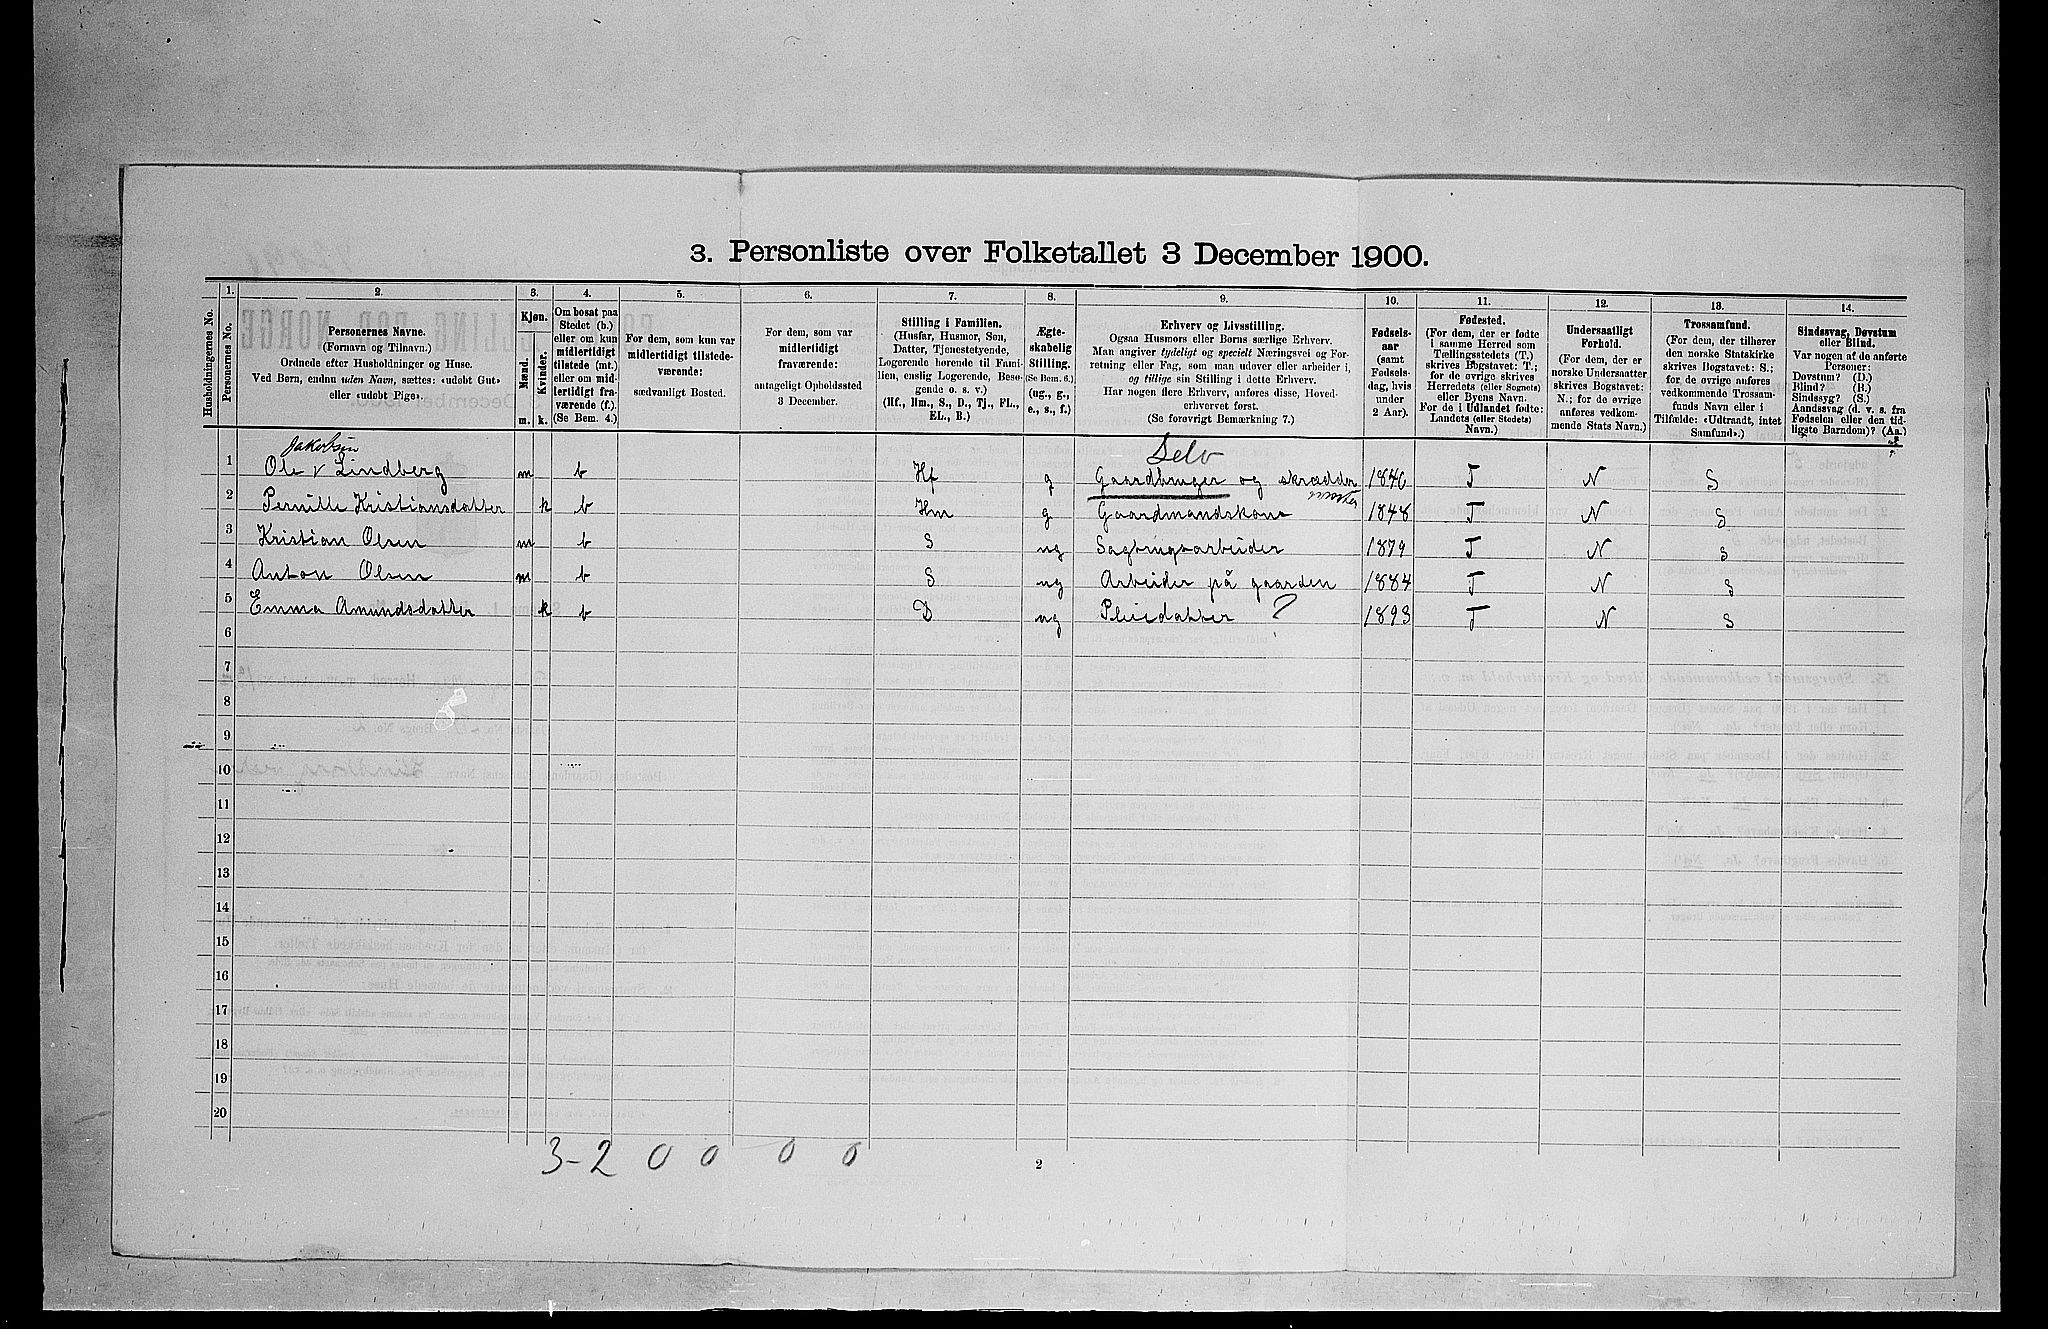 3. Personliste over Folketallet 3 December 1900.
1. 2. 3. 4. 5. 6. 7. 8. 9. 10. 11. 12. 13. 14.
Husholdningernes No.
Personernes No.
Personernes Navne.
(Fornavn og Tilnavn.)
Ordnede efter Husholdninger og Huse.
Ved Børn, endnu uden Navn, sættes: «udøbt Gut»
eller «udøbt Pige».
Kjøn.
Mænd.
Kvinder.
m. k.
Om bosat paa
Stedet (b.)
eller om kun
midlertidigt
tilstede (mt.)
eller om mid-
lertidigt fra-
værende (f.).
(Se Bem. 4.)
For dem, som kun var
midlertidigt tilstede-
værende:
sædvanligt Bosted.
For dem, som var
midlertidigt
fraværende:
antageligt Opholdssted
3 December.
Stilling i Familien.
(Husfar, Husmor, Søn,
Datter, Tjenestetyende,
Logerende hørende til Fami-
lien, enslig Logerende, Besø-
gende o. s. v.)
(Hf., Hm., S., D., Tj., FL.,
EL., B.)
Ægte-
skabelig
Stilling.
(Se Bem. 6.)
(ug., g.,
e., s., f.)
Erhverv og Livsstilling.
Ogsaa Husmors eller Børns særlige Erhverv.
Man angiver tydeligt og specielt Næringsvei og For-
retning eller Fag, som man udøver eller arbeider i,
og tillige sin Stilling i dette Erhverv.
Har nogen flere Erhverv, anføres disse, Hoved-
erhvervet først.
(Se forøvrigt Bemærkning 7.)
Fødsels-
aar
(samt
Fødsels-
dag, hvis
under
2 Aar).
Fødested.
(For dem, der er fødte
i samme Herred som
Tællingsstedets (T.)
skrives Bogstavet: T.;
for de øvrige skrives
Herredets (eller Sognets)
eller Byens Navn.
For de i Udlandet fødte:
Landets (eller Stedets)
Navn.)
Undersaatligt
Forhold.
(For dem, der er
norske Undersaatter
skrives Bogstavet:
N.; for de øvrige
anføres vedkom-
mende Stats Navn.)
Trossamfund.
(For dem, der tilhører
den norske Statskirke
skrives Bogstavet: S.;
for de øvrige anføres
vedkommende Trossam-
funds Navn eller i
Tilfælde: «Udtraadt, intet
Samfund».)
Sindssvag, Døvstum
eller Blind.
Var nogen af de anførte
Personer:
Døvstum? (D.)
Blind? (B.)
Sindssyg? (S.)
Aandssvag (d. v. s. fra
Fødselen eller den tid-
ligste Barndom)? (Aa.)
Jakobsen Selv
1 Ole v Lindberg m b Hf g Gaardbruger og skrædder 1846 T N S
mester
2 Pernille Kristiansdatter k b Hm g Gaardmandskone 1848 T N S
3 Kristian Olsen m b S ug Sagbrugsarbeider 1879 T N S
4 Anton Olsen m b S ug Arbeider på gaarden 1884 T N S
5 Emma Amundsdatter k b D ug Pleiedatter ? 1893 T N S
6
7
8
9
10
11
12
13
14
15
16
17
18
19
20
3-2 0 0 0 0
2